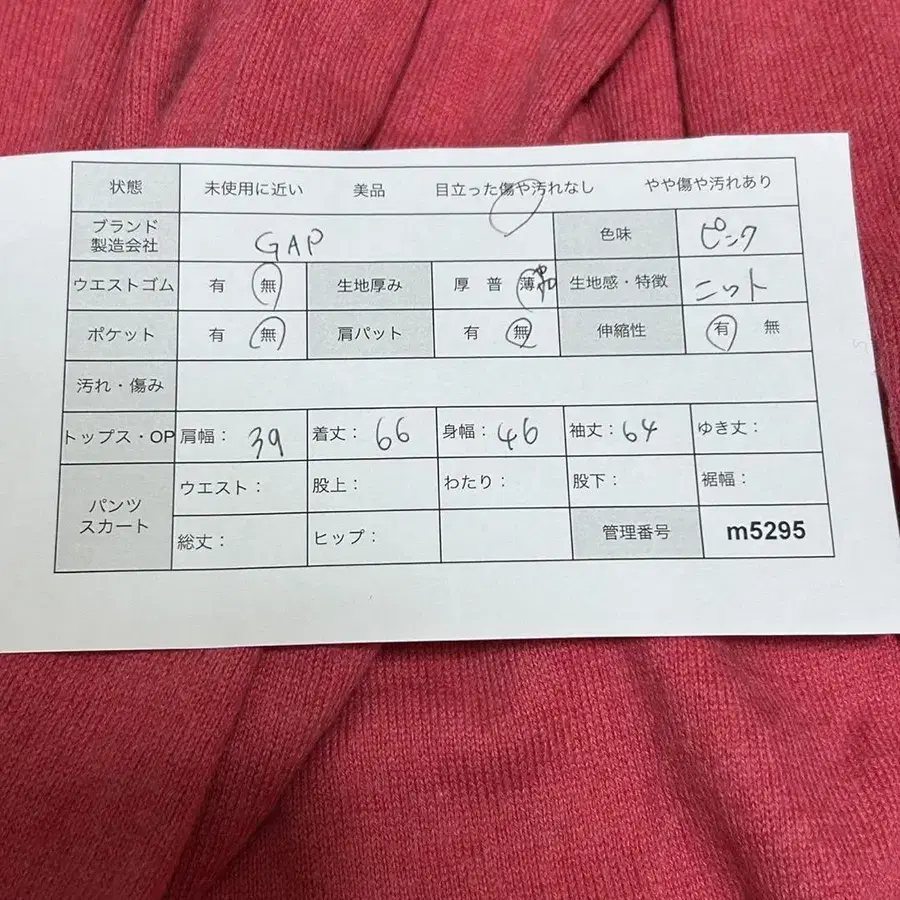 状態 未使用に近い 美品 目立った傷や汚れなし やや傷や汚れあり
ブランド 製造会社 GAP 色味 ピンク
ウエストゴム 有 無 生地厚み 厚 普 薄 生地感・特徴 ニット
ポケット 有 無 肩パット 有 無 伸縮性 有 無
汚れ・傷み
トップス・OP 肩幅： 39 着丈： 66 身幅： 46 袖丈： 64 ゆき丈：
パンツ スカート ウエスト： 股上： わたり： 股下： 裾幅：
総丈： ヒップ： 管理番号 m5295